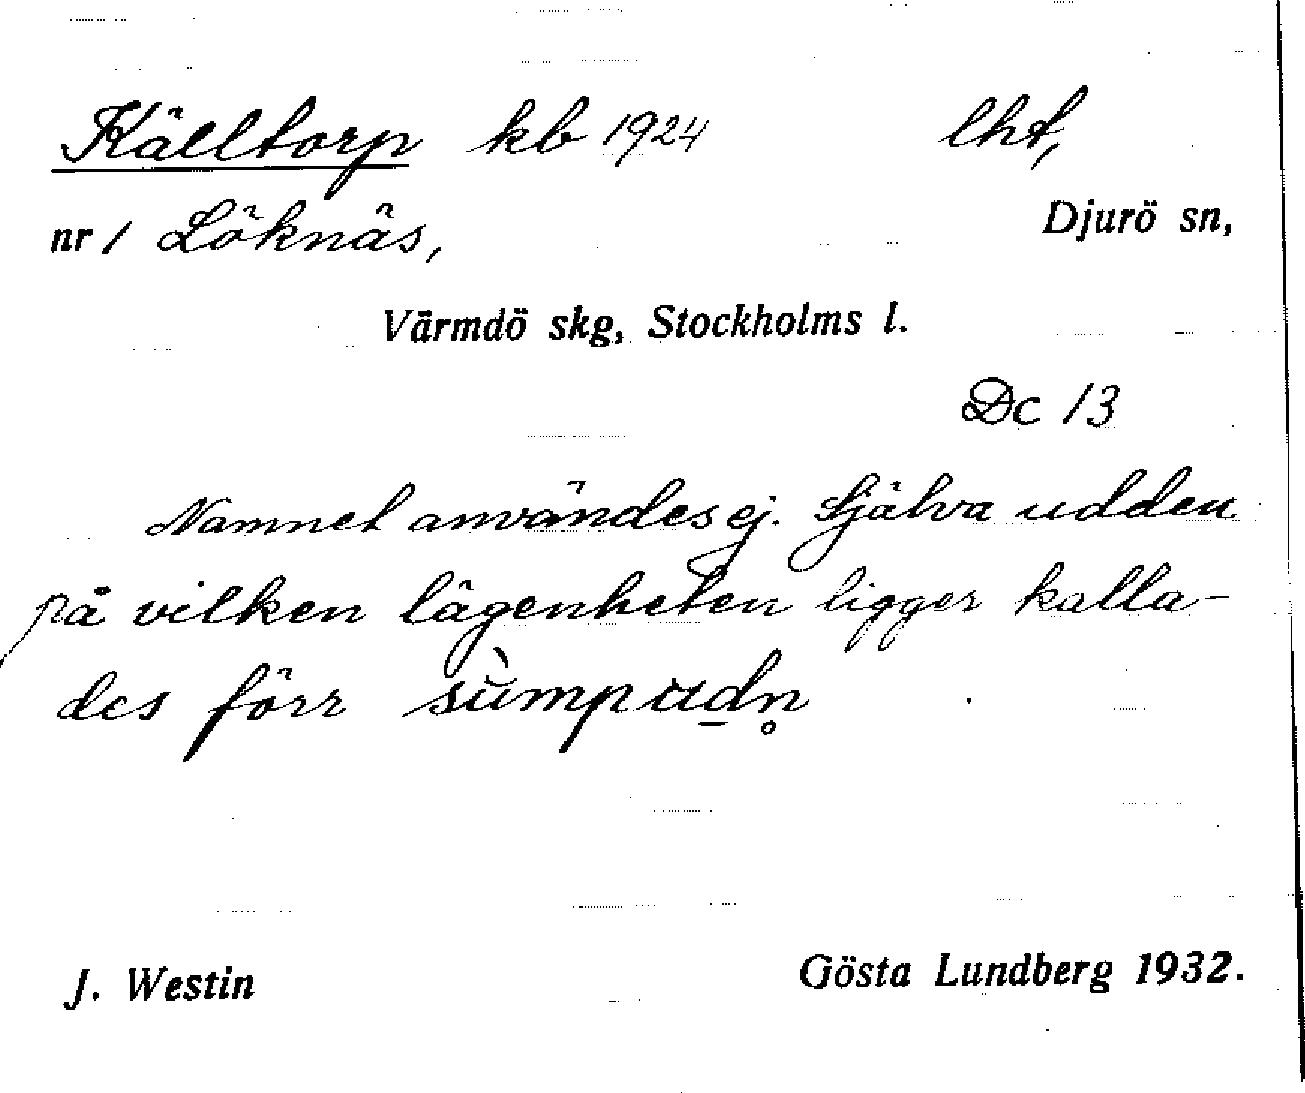 Källtorp kb 1924 lht,
nr 1 Löknäs, Djurö sn,
Värmdö skg, Stockholms l.
Dc 13
Namnet användes ej. Själva udden
på vilken lägenheten ligger kalla-
des förr sùmpud̲n̥
J. Westin Gösta Lundberg 1932.